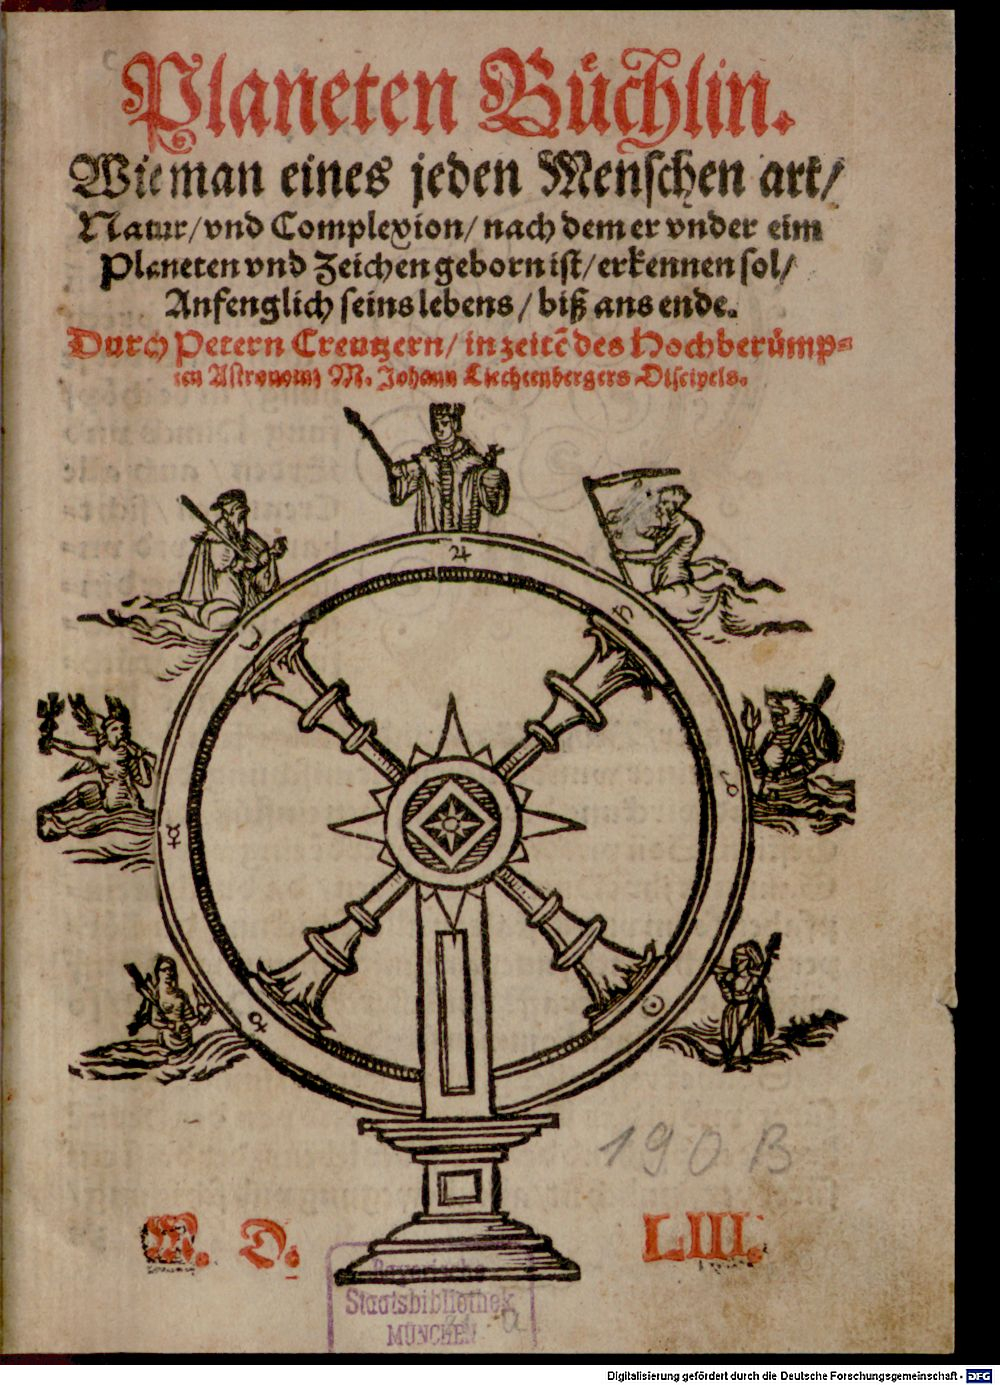 Planeten Buͤchlin.
Wie man eines jeden Menschen art/
Natur/ vnd Complexion/ nach dem er vnder eim
Planeten vnd Zeichen geborn ist/ erkennen sol/
Anfenglich seins lebens/ biß ans ende.
Durch Petern Creutzern/ in zeitē des Hochberuͤmp=
ten Astronomi M. Johann Liechtenbergers Discipels.
♃
☾ ♄
☿ ♂
♀ ☉
190 B
M. D. LIII.
Bayerische
Staatsbibliothek
MÜNCHEN
Digitalisierung gefördert durch die Deutsche Forschungsgemeinschaft - DFG